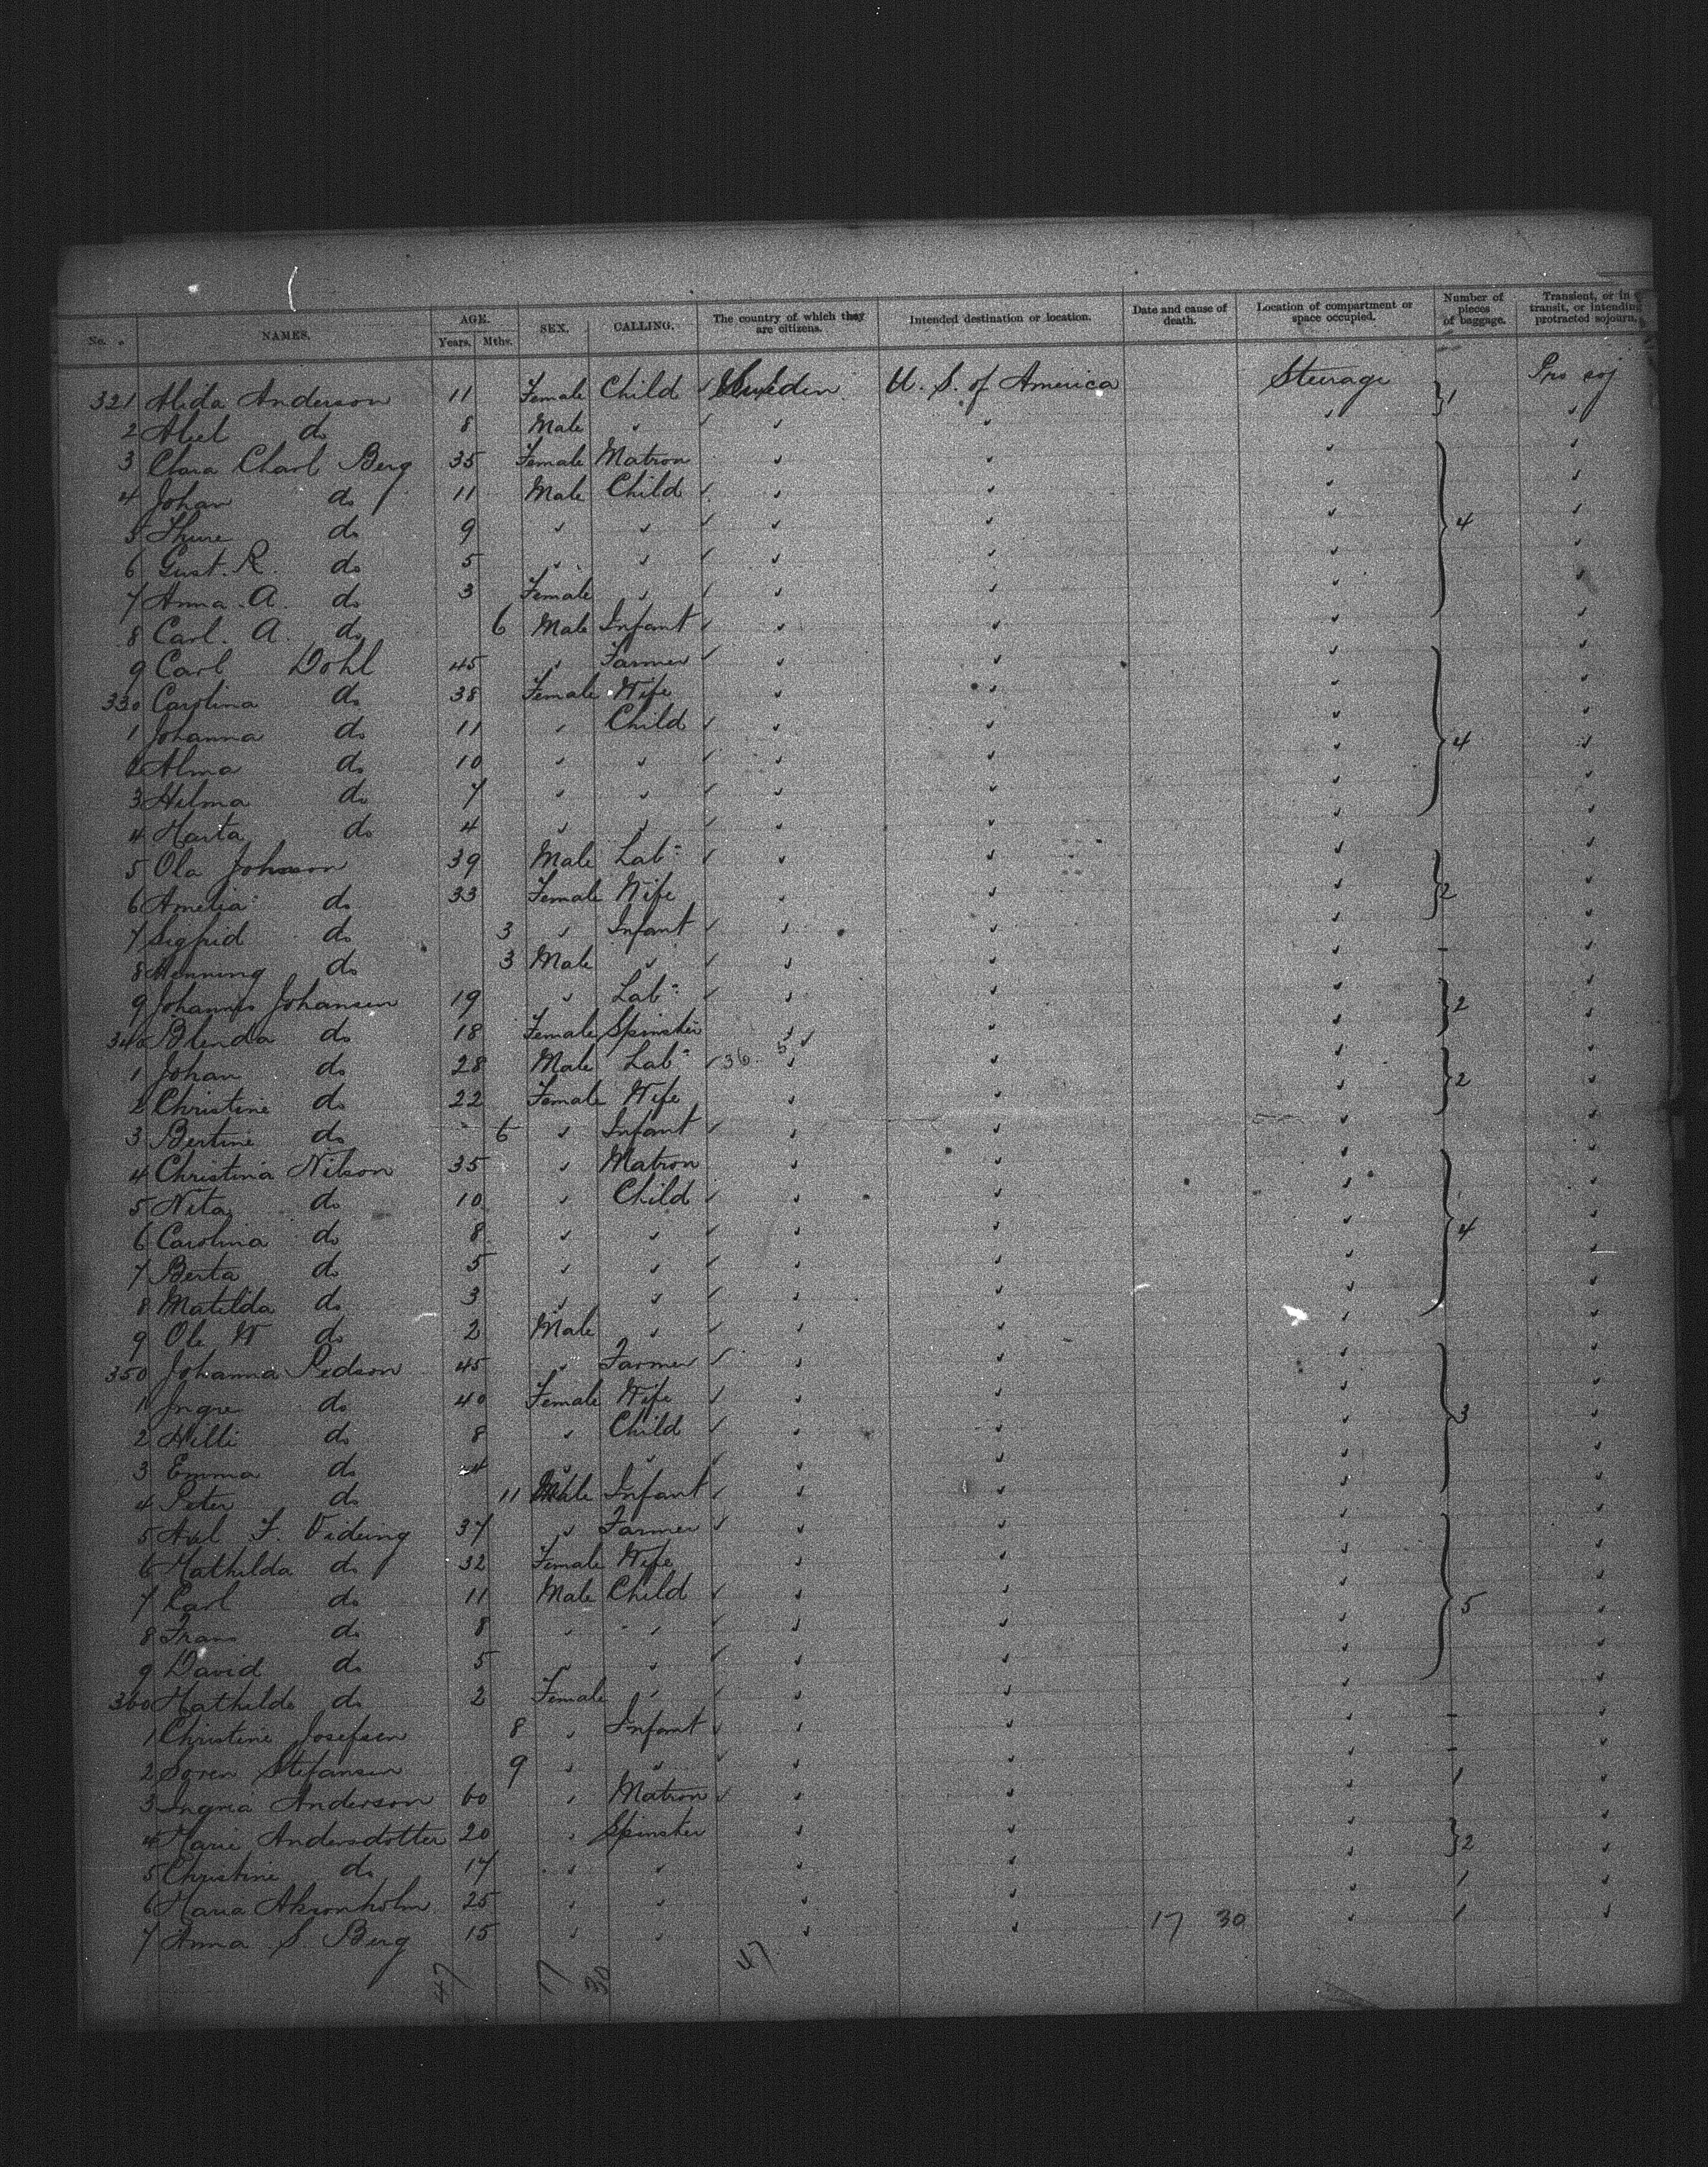 No. NAMES. AGE. Years. Mths. SEX. CALLING. The country of which they are citizens. Intended destination or location. Date and cause of death. Location of compartment or space occupied. Number of pieces of baggage. Transient, or in transit, or intending protracted sojourn.
321 Alida Anderson 11 Female Child ✓ Sweden U. S. of America Steerage 1 Pro soj
2 Axel do 8 Male
3 Clara Charl Berg 35 Female Matron
4 Johan do 11 Male Child
5 Thure do 9 4
6 Gust. R. do 5
7 Anna. A. do 3 Female
8 Carl. A. do 6 Male Infant
9 Carl Dohl 45 Farmer
330 Carolina do 38 Female Wife
1 Johanna do 11 Child
2 Alma do 10 4
3 Hilma do 7
4 Marta do 4
5 Ola Johnson 39 Male Lab
6 Amelia do 33 Female Wife 2
7 Sigfrid do 3 Infant
8 Henning do 3 Male
9 Johannes Johansen 19 Lab 2
340 Blenda do 18 Female Spinster
1 Johan do 28 Male Lab 36 5
2 Christine do 22 Female Wife 2
3 Bertine do 6 Infant
4 Christina Nilson 35 Matron
5 Nita do 10 Child
6 Carolina do 8 4
7 Berta do 5
8 Matilda do 3
9 Ole W do 2 Male
350 Johanna Pedson 45 Farmer
1 Ingre do 40 Female Wife
2 Hilli do 8 Child 3
3 Emma do 4
4 Peter do 11 Male Infant
5 Axl F. Videing 37 Farmer
6 Mathilda do 32 Female Wife
7 Carl do 11 Male Child 5
8 Frans do 8
9 David do 5
360 Mathilda do 2 Female
1 Christine Josefsen 8 Infant
2 Soren Stefansen 9
3 Ingria Anderson 60 Matron 1
4 Marie Andersdotter 20 Spinster
5 Christine do 17 2
6 Maria Akronholm 25 1
7 Anna S. Berg 15 17 30 1
47 17 30 47